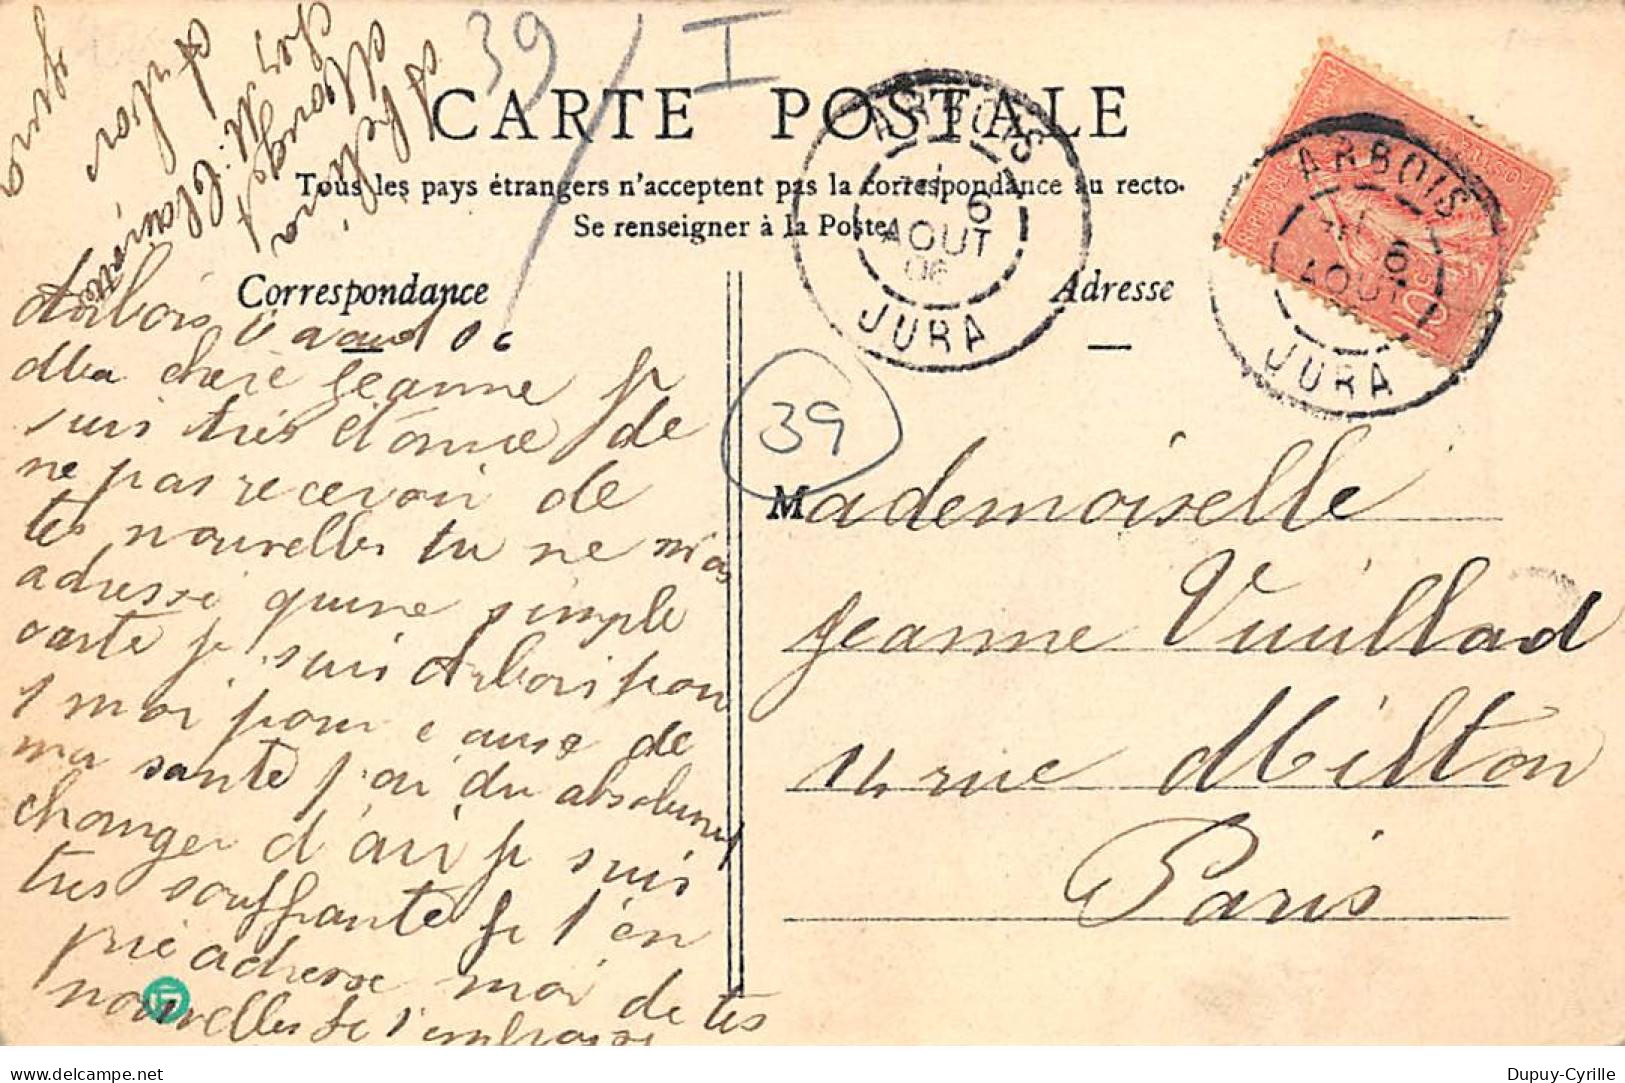 39 / I
CARTE POSTALE
Tous les pays étrangers n'acceptent pas la correspondance au recto.
Se renseigner à la Poste
Correspondance
Adresse
ARBOIS
6
AOUT
06
JURA
ARBOIS
6
AOUT
JURA
39
Arbois 6 aout 06
Ma chere Jeanne je
suis très étonné de
ne pas recevoir de
tes nouvelles tu ne mas
adressé quune simple
carte je suis Arbois pour
1 moi pour cause de
ma santé j'ai du absolument
changer d'air je suis
tres souffrante je t'en
prie adresse moi de tes
nouvelles je t'embrasse
Mademoiselle
Jeanne Vuillad
14 rue Milton
Paris
Arbois
Jura
delcampe.net
Dupuy-Cyrille